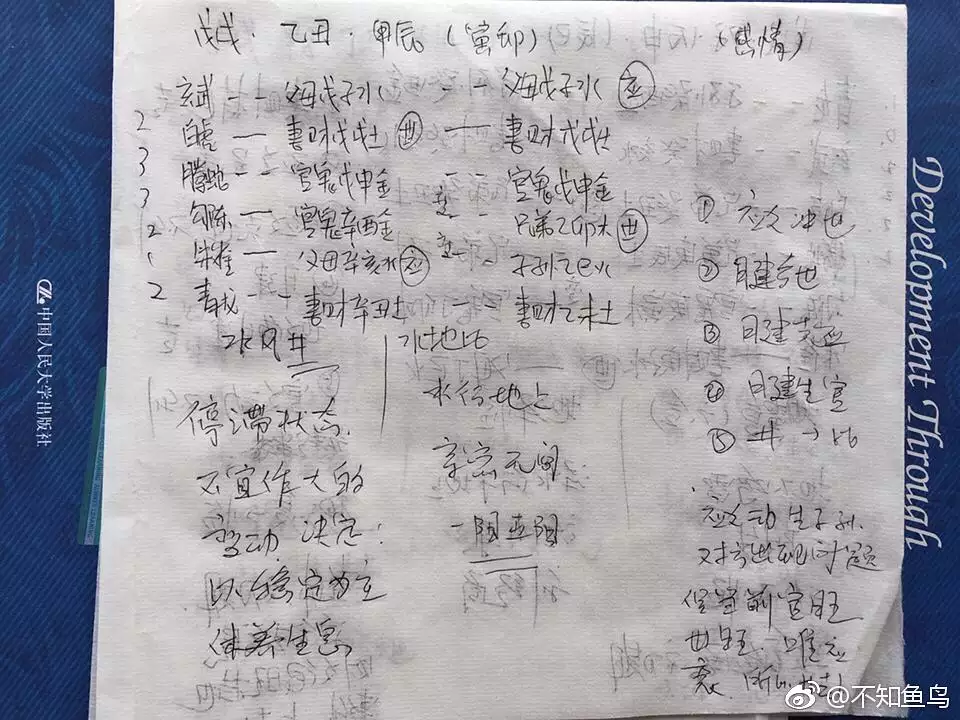 戊戌·乙丑·甲辰(寅卯) (感情)
玄武 -- 父母戊子水 -- 父母戊子水 应
2 白虎 — 妻财戊戌土 世 — 妻财戊戌土
3 腾蛇 -- 官鬼戊申金 -- 官鬼戊申金 ① 应爻冲世
3 勾陈 — 官鬼辛酉金 -- 兄弟乙卯木 世
2 朱雀 — 父母辛亥水 应 -- 子孙乙巳火 ② 日建合世
1 2 青龙 -- 妻财辛丑土 妻财乙未土 ③ 日建克应
水风井 水地比
④ 日建生官
⑤ 井→比
停滞状态
不宜作大的
变动 决定:
以稳定为主
休养生息
水行地上
亲密无间
一阳五阴
应爻动生子孙.
对方出现问题
官旺
世旺. 唯应
衰.
Development Through
中国人民大学出版社
@不知鱼鸟